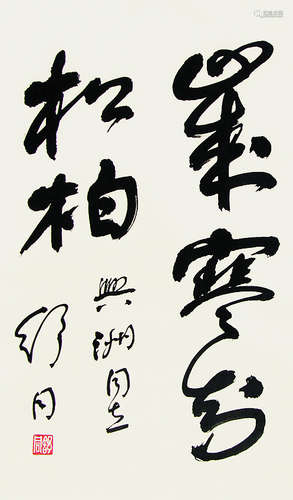 歲寒知
松柏
興洲同志
舒同